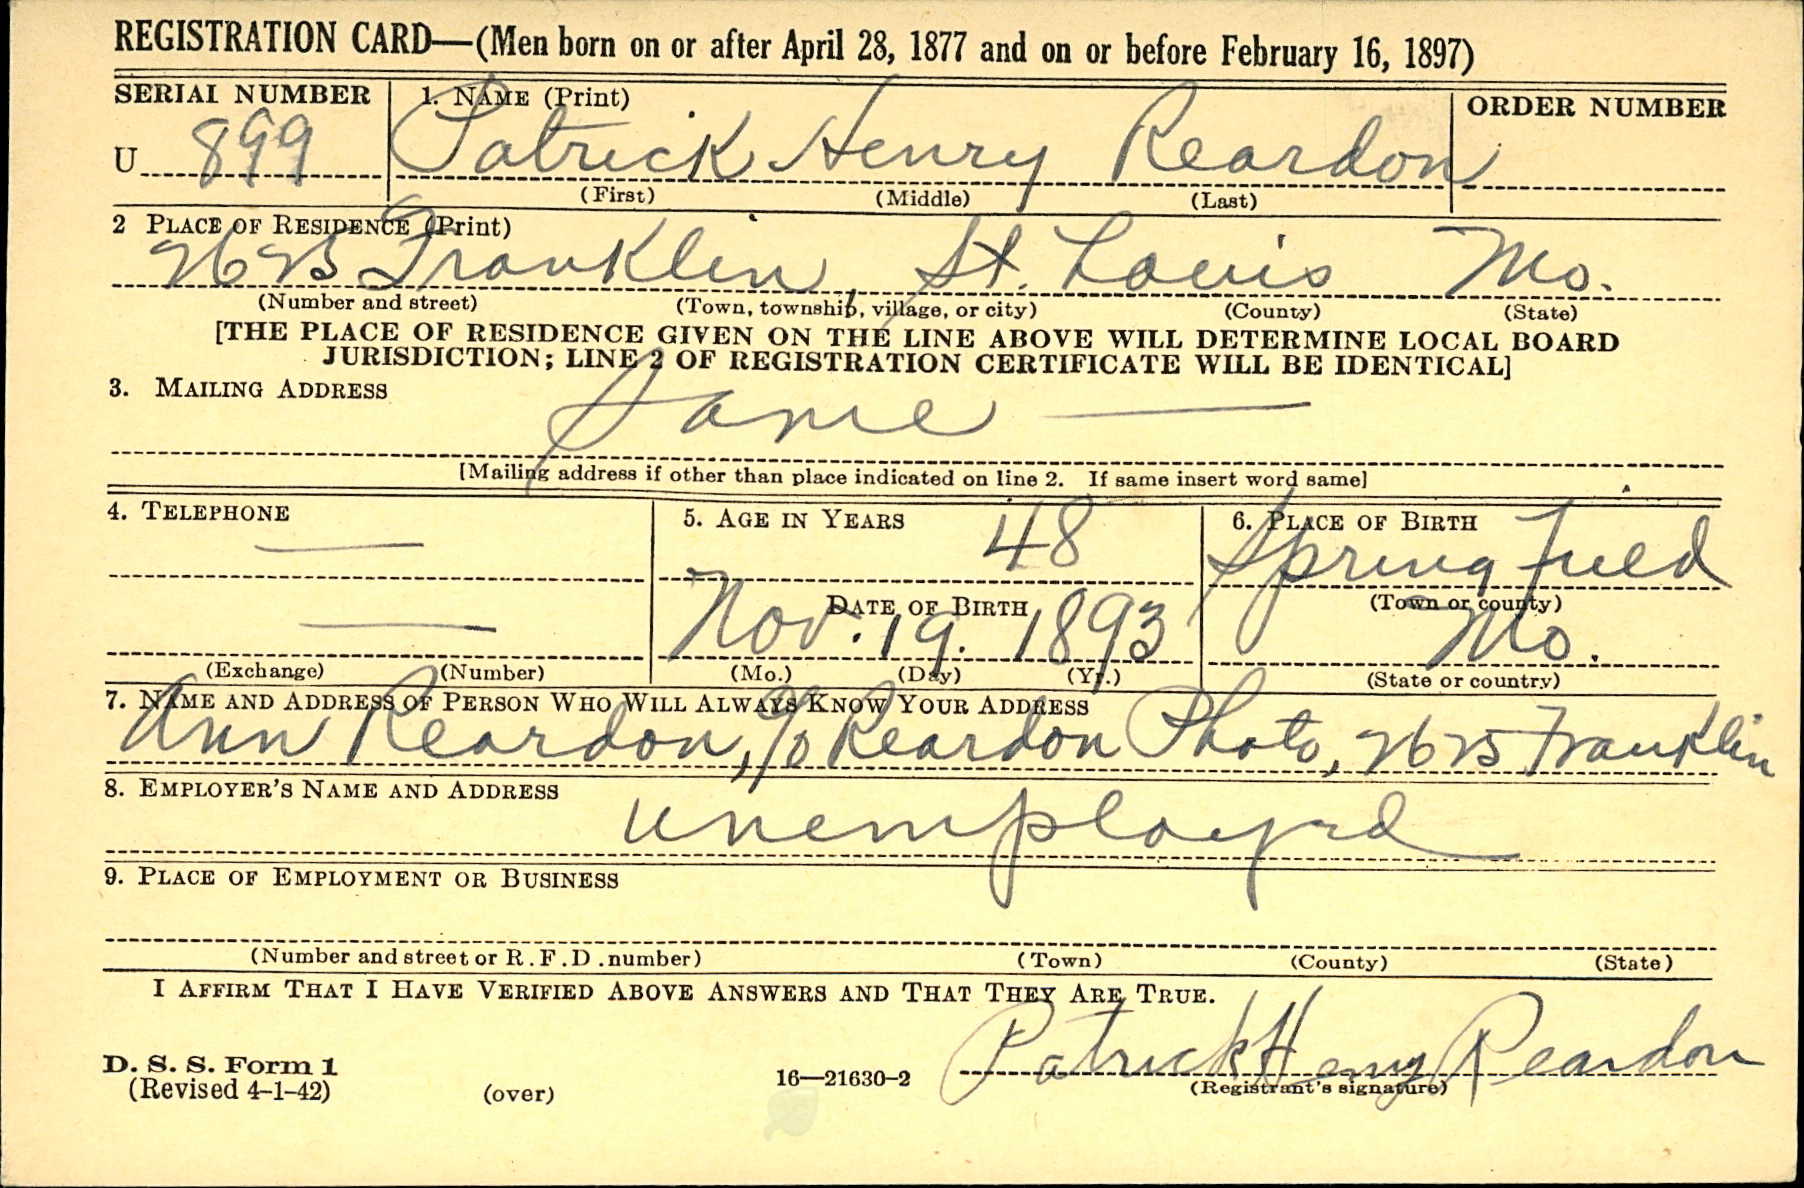 REGISTRATION CARD—(Men born on or after April 28, 1877 and on or before February 16, 1897)
SERIAL NUMBER 1. NAME (Print) ORDER NUMBER
U 899 Patrick Henry Reardon
(First) (Middle) (Last)
2 PLACE OF RESIDENCE (Print)
2625 Franklin, St. Louis Mo.
(Number and street) (Town, township, village, or city) (County) (State)
[THE PLACE OF RESIDENCE GIVEN ON THE LINE ABOVE WILL DETERMINE LOCAL BOARD
JURISDICTION; LINE 2 OF REGISTRATION CERTIFICATE WILL BE IDENTICAL]
3. MAILING ADDRESS
Same —
[Mailing address if other than place indicated on line 2. If same insert word same]
4. TELEPHONE 5. AGE IN YEARS 6. PLACE OF BIRTH
— 48 Springfield
DATE OF BIRTH (Town or county)
— Nov. 19. 1893 Mo.
(Exchange) (Number) (Mo.) (Day) (Yr.) (State or country)
7. NAME AND ADDRESS OF PERSON WHO WILL ALWAYS KNOW YOUR ADDRESS
Ann Reardon, c/o Reardon Photo, 2625 Franklin
8. EMPLOYER'S NAME AND ADDRESS
unemployed
9. PLACE OF EMPLOYMENT OR BUSINESS
(Number and street or R.F.D. number) (Town) (County) (State)
I AFFIRM THAT I HAVE VERIFIED ABOVE ANSWERS AND THAT THEY ARE TRUE.
Patrick Henry Reardon
D. S. S. Form 1
(Revised 4-1-42) (over) 16—21630-2 (Registrant's signature)